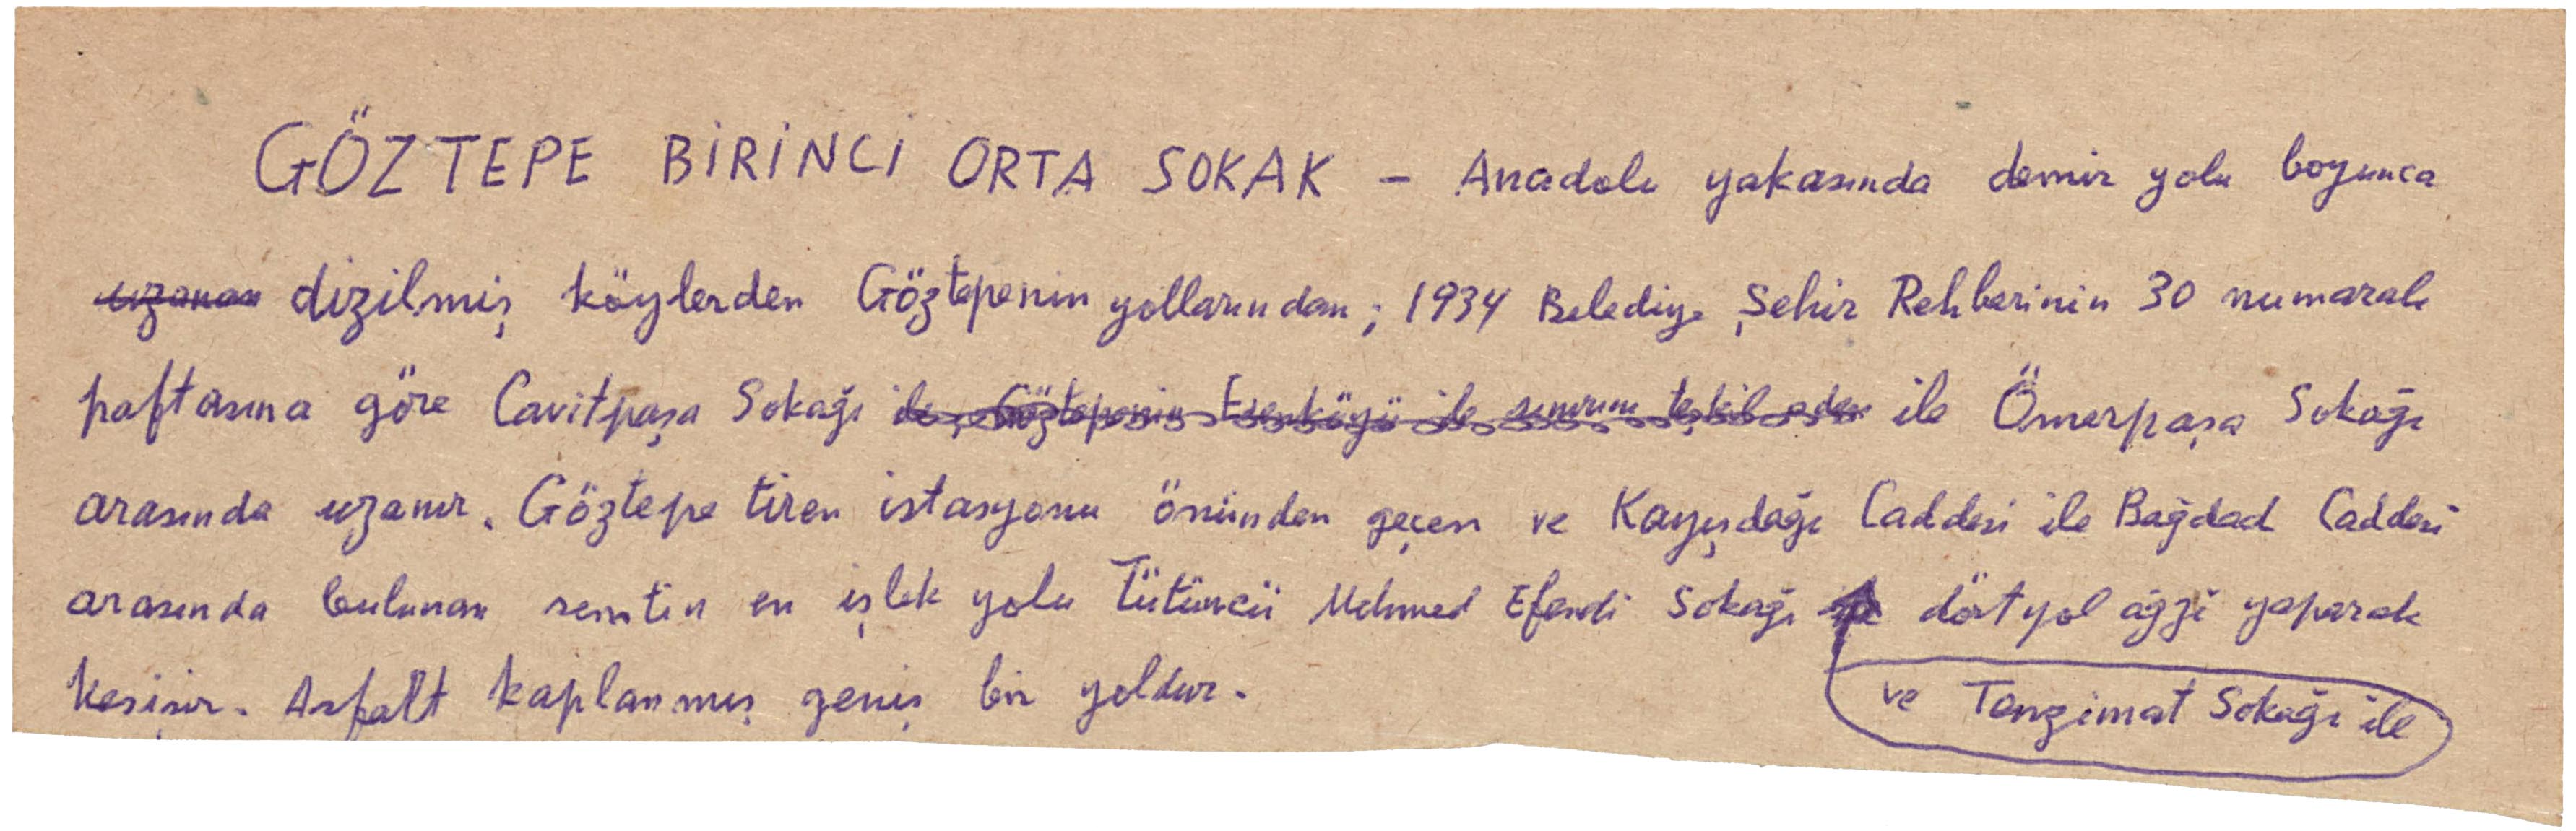 GÖZTEPE BİRİNCİ ORTA SOKAK – Anadolu yakasında demir yolu boyunca
uzanan dizilmiş köylerden Göztepenin yollarından; 1934 Belediye Şehir Rehberinin 30 numaralı
paftasına göre Cavitpaşa Sokağı ile, Göztepenin Erenköyü ile sınırını teşkil eden ile Ömerpaşa Sokağı
arasında uzanır. Göztepe tiren istasyonu önünden geçen ve Kayışdağı Caddesi ile Bağdad Caddesi
arasında bulunan semtin en işlek yolu Tütüncü Mehmed Efendi Sokağı dörtyol ağzi yaparak
kesişir. Asfalt kaplanmış geniş bir yoldur.
ve Tanzimat Sokağı ile